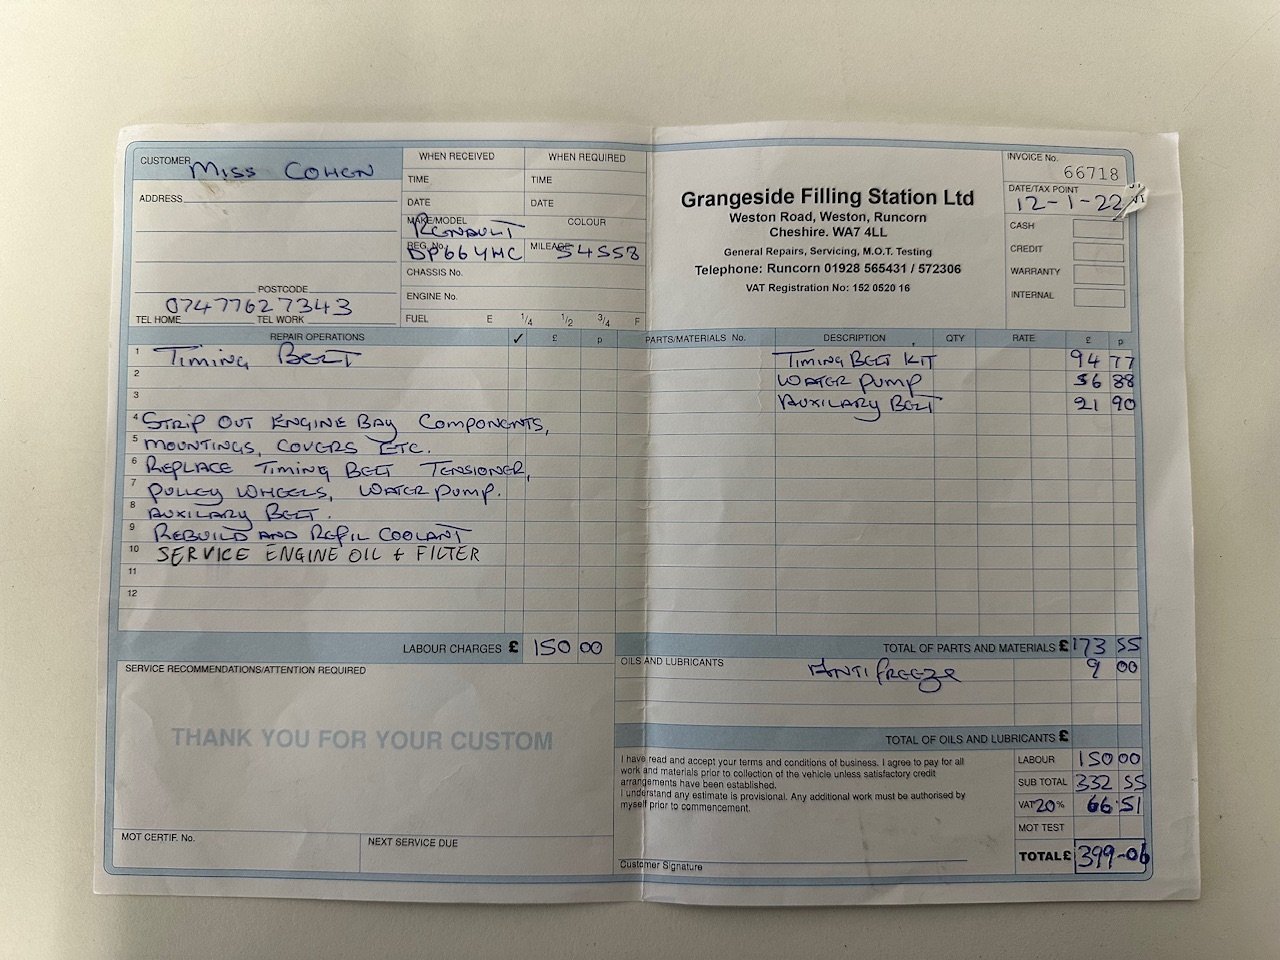 CUSTOMER Miss COHEN
ADDRESS
POSTCODE
07477627343
TEL HOME TEL WORK
WHEN RECEIVED WHEN REQUIRED
TIME TIME
DATE DATE
MAKE/MODEL COLOUR
RENAULT
REG. No. DP66 YHC MILEAGE 54558
CHASSIS No.
ENGINE No.
FUEL E 1/4 1/2 3/4 F
Grangeside Filling Station Ltd
Weston Road, Weston, Runcorn
Cheshire. WA7 4LL
General Repairs, Servicing, M.O.T. Testing
Telephone: Runcorn 01928 565431 / 572306
VAT Registration No: 152 0520 16
INVOICE No.
66718
DATE/TAX POINT
12-1-22
CASH
CREDIT
WARRANTY
INTERNAL
REPAIR OPERATIONS ✓ £ p
1 TIMING BELT
2
3
4 STRIP OUT ENGINE BAY COMPONENTS,
5 MOUNTINGS, COVERS ETC.
6 REPLACE TIMING BELT TENSIONER,
7 PULLEY WHEELS, WATER PUMP.
8 AUXILARY BELT.
9 REBUILD AND REFIL COOLANT
10 SERVICE ENGINE OIL + FILTER
11
12
LABOUR CHARGES £ 150 00
PARTS/MATERIALS No. DESCRIPTION QTY RATE £ p
TIMING BELT KIT 94 77
WATER PUMP 56 88
AUXILARY BELT 21 90
TOTAL OF PARTS AND MATERIALS £ 173 55
OILS AND LUBRICANTS ANTIFREEZE 9 00
TOTAL OF OILS AND LUBRICANTS £
SERVICE RECOMMENDATIONS/ATTENTION REQUIRED
THANK YOU FOR YOUR CUSTOM
MOT CERTIF. No. NEXT SERVICE DUE
I have read and accept your terms and conditions of business. I agree to pay for all
work and materials prior to collection of the vehicle unless satisfactory credit
arrangements have been established.
I understand any estimate is provisional. Any additional work must be authorised by
myself prior to commencement.
Customer Signature
LABOUR 150 00
SUB TOTAL 332 55
VAT 20% 66.51
MOT TEST
TOTAL £ 399-06